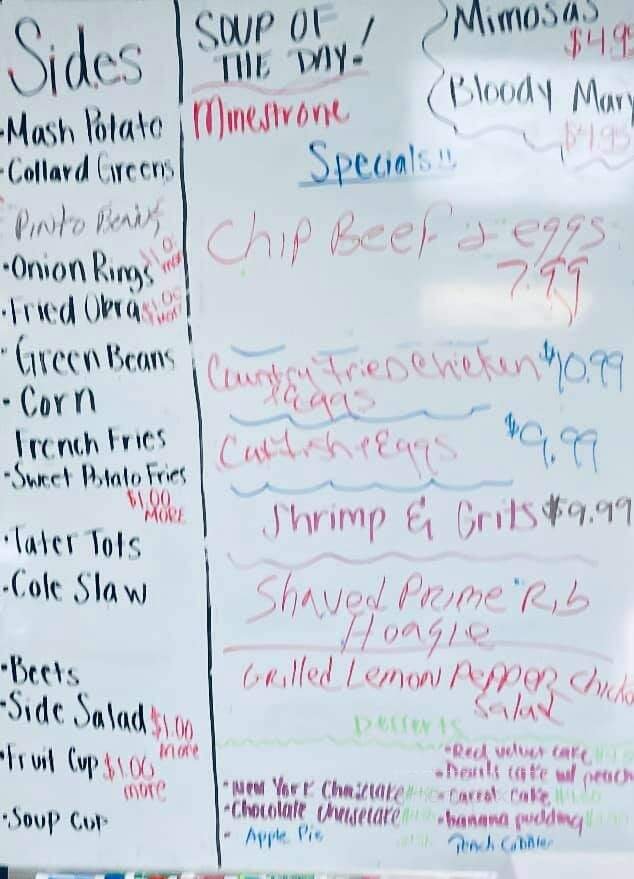 Sides
•Mash Potato
•Collard Greens
Pinto Beans
•Onion Rings $1.00 more
•Fried Okra $1.00 more
•Green Beans
•Corn
French Fries
•Sweet Potato Fries
$1.00 MORE
•Tater Tots
•Cole Slaw
•Beets
•Side Salad $1.00 more
•Fruit Cup $1.00 more
•Soup Cup
SOUP OF
THE DAY!
Minestrone
Mimosas
$4.95
Bloody Mary
$4.95
Specials!!
Chip Beef & eggs
7.99
Country Fried Chicken $10.99
& Eggs
Catfish & Eggs $9.99
Shrimp & Grits $9.99
Shaved Prime Rib
Hoagie
Grilled Lemon Pepper Chick
Salad
Desserts
•New York Cheesecake
•Chocolate Cheesecake
- Apple Pie
•Red velvet cake
•Devils cake w/ peach
•Carrot Cake
•banana pudding
Peach Cobbler